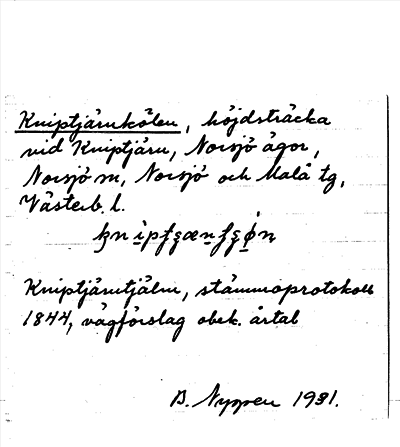 Kniptjärnkölen, höjdsträcka
vid Kniptjärn, Norsjö ägor,
Norsjö sn, Norsjö och Malå tg,
Västerb. l.
Kniptjärntjäln, stämmoprotokoll
1844, vägförslag obek. årtal
1931.